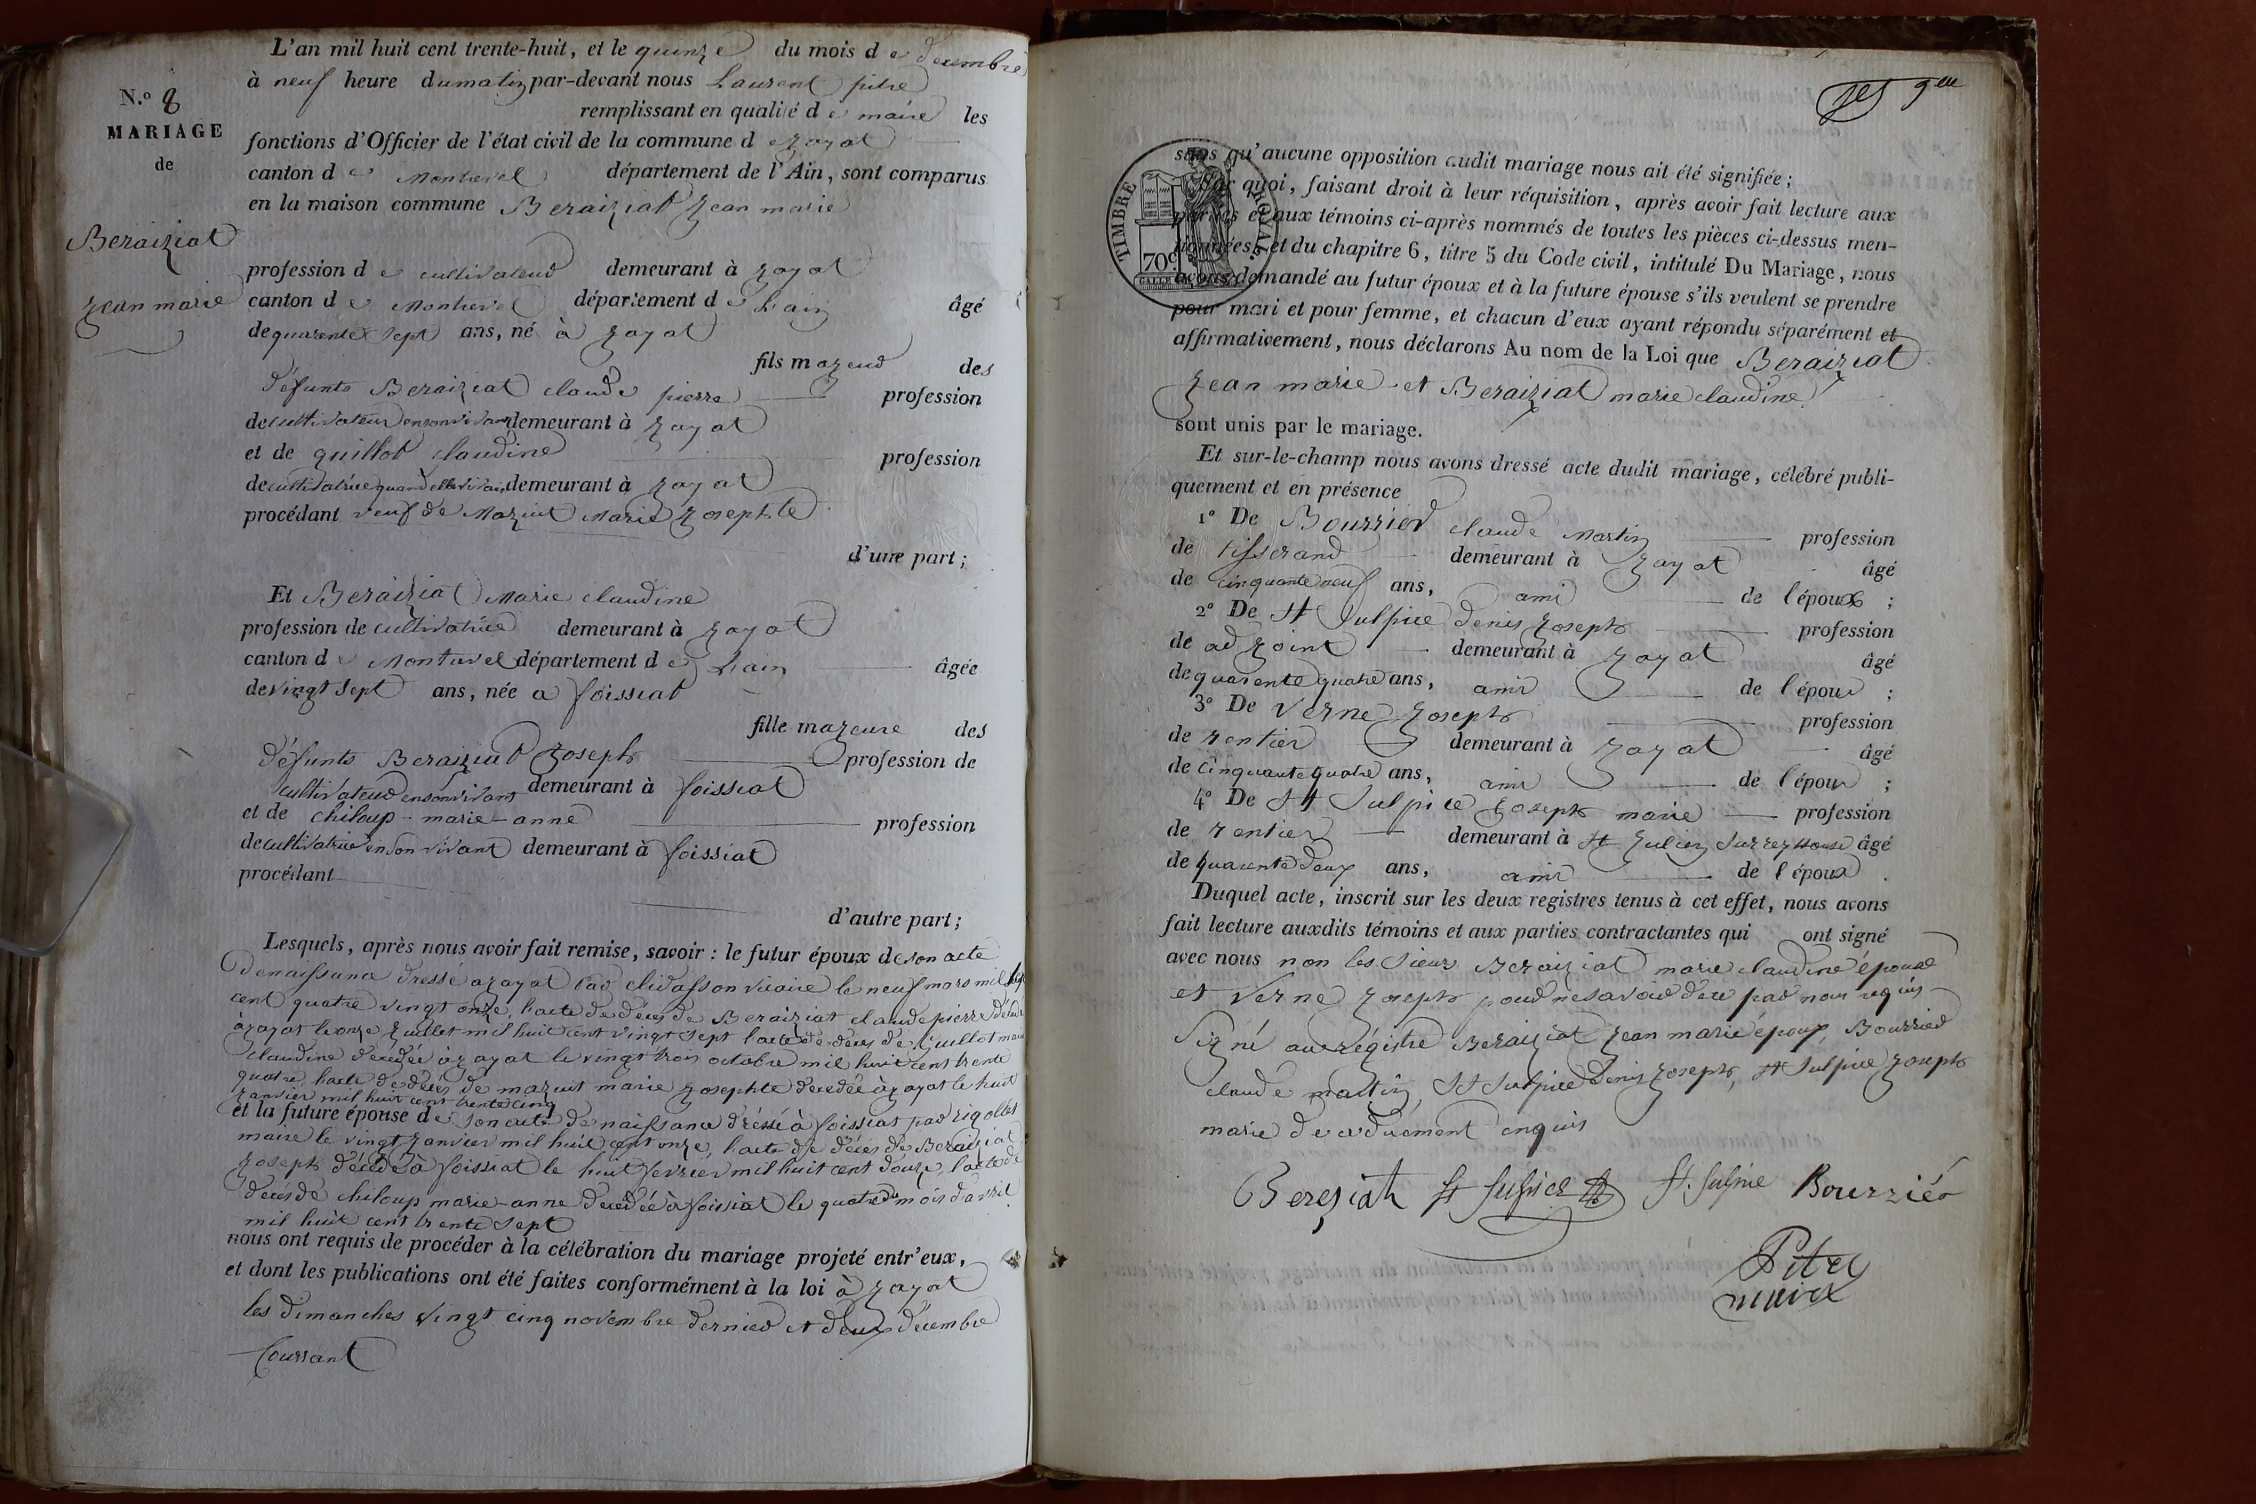 L'an mil huit cent trente-huit, et le quinze du mois de decembre
à neuf heure du matin par-devant nous Laurent pitre
N.º 8
remplissant en qualité de maire les
MARIAGE
fonctions d'Officier de l'état civil de la commune de Jayat
de
canton de Montrevel département de l'Ain, sont comparus
en la maison commune Beraiziat Jean marie
Beraiziat
profession de cultivateur demeurant à Jayat
Jean marie
canton de Montrevel département de L'ain âgé
de quarente sept ans, né à Jayat
fils majeur des
défunts Beraiziat claude pierre profession
de cultivateur en son vivant demeurant à Jayat
et de guillot claudine profession
de cultivatrice quand elle vivait demeurant à Jayat
procédant veuf de Mazuit Marie Josephte
d'une part;
Et Beraiziat Marie claudine
profession de cultivatrice demeurant à Jayat
canton de Montrevel département de L'ain âgée
de vingt sept ans, née a foissiat
fille majeure des
défunts Beraiziat Joseph profession de
cultivateur en son vivant demeurant à foissiat
et de chiloup-marie-anne profession
de cultivatrice en son vivant demeurant à foissiat
procédant
d'autre part;
Lesquels, après nous avoir fait remise, savoir: le futur époux de son acte
de naissance dressé a Jayat par vicaire le neuf mars mil sept
cent quatre vingt onze, l'acte de décès de Beraiziat claude pierre décédé
à Jayat le onze Juillet mil huit cent vingt sept l'acte de décès de Guillot marie
claudine décédée à Jayat le vingt trois octobre mil huit cent trente
quatre, l'acte de décès de mazuit marie Josephte décedée à Jayat le huit
Janvier mil huit cent trente cinq
et la future épouse de son acte de naissance dréssé à foissiat par rigollet
maire le vingt Janvier mil huit cent onze, l'acte de décès de Beraiziat
Joseph décédé à foissiat le huit fevrier mil huit cent douze, l'acte de
décès de chiloup marie-anne decedée à foissiat le quatre du mois d'avril
mil huit cent trente sept
nous ont requis de procéder à la célébration du mariage projeté entr'eux,
et dont les publications ont été faites conformément à la loi à Jayat
les dimanches vingt cinq novembre dernier et deux décembre
Courrant
sans qu'aucune opposition audit mariage nous ait été signifiée;
Sur quoi, faisant droit à leur réquisition, après avoir fait lecture aux
parties et aux témoins ci-après nommés de toutes les pièces ci-dessus men-
tionnées, et du chapitre 6, titre 5 du Code civil, intitulé Du Mariage, nous
avons demandé au futur époux et à la future épouse s'ils veulent se prendre
pour mari et pour femme, et chacun d'eux ayant répondu séparément et
affirmativement, nous déclarons Au nom de la Loi que Beraiziat
Jean marie et Beraiziat marie claudine
sont unis par le mariage.
TIMBRE ROYAL
70c
Et sur-le-champ nous avons dressé acte dudit mariage, célébré publi-
quement et en présence
1º De Bourrier claude Martin profession
de tisserand demeurant à Jayat âgé
de cinquante neuf ans, ami de l'époux;
2º De St Sulpice denis Joseph profession
de adjoint demeurant à Jayat âgé
de quarente quatre ans, ami de l'époux;
3º De Verne Joseph profession
de rentier demeurant à Jayat âgé
de cinquante quatre ans, ami de l'époux;
4º De St Sulpice Joseph marie profession
de rentier demeurant à St Julien sur reyssouse âgé
de quarente deux ans, ami de l'époux.
Duquel acte, inscrit sur les deux registres tenus à cet effet, nous avons
fait lecture auxdits témoins et aux parties contractantes qui ont signé
avec nous non les sieurs Beraiziat marie claudine épouse
et Verne Joseph pour ne savoir de ce par nous requis
Signé au régistre Beraiziat Jean marie époux, Bourrier
claude martin, St Sulpice Denis Joseph, St Sulpice Joseph
marie de ce duement enquis
Bereziat St Sulpice St. Sulpice Bourrier
Pitre
maire